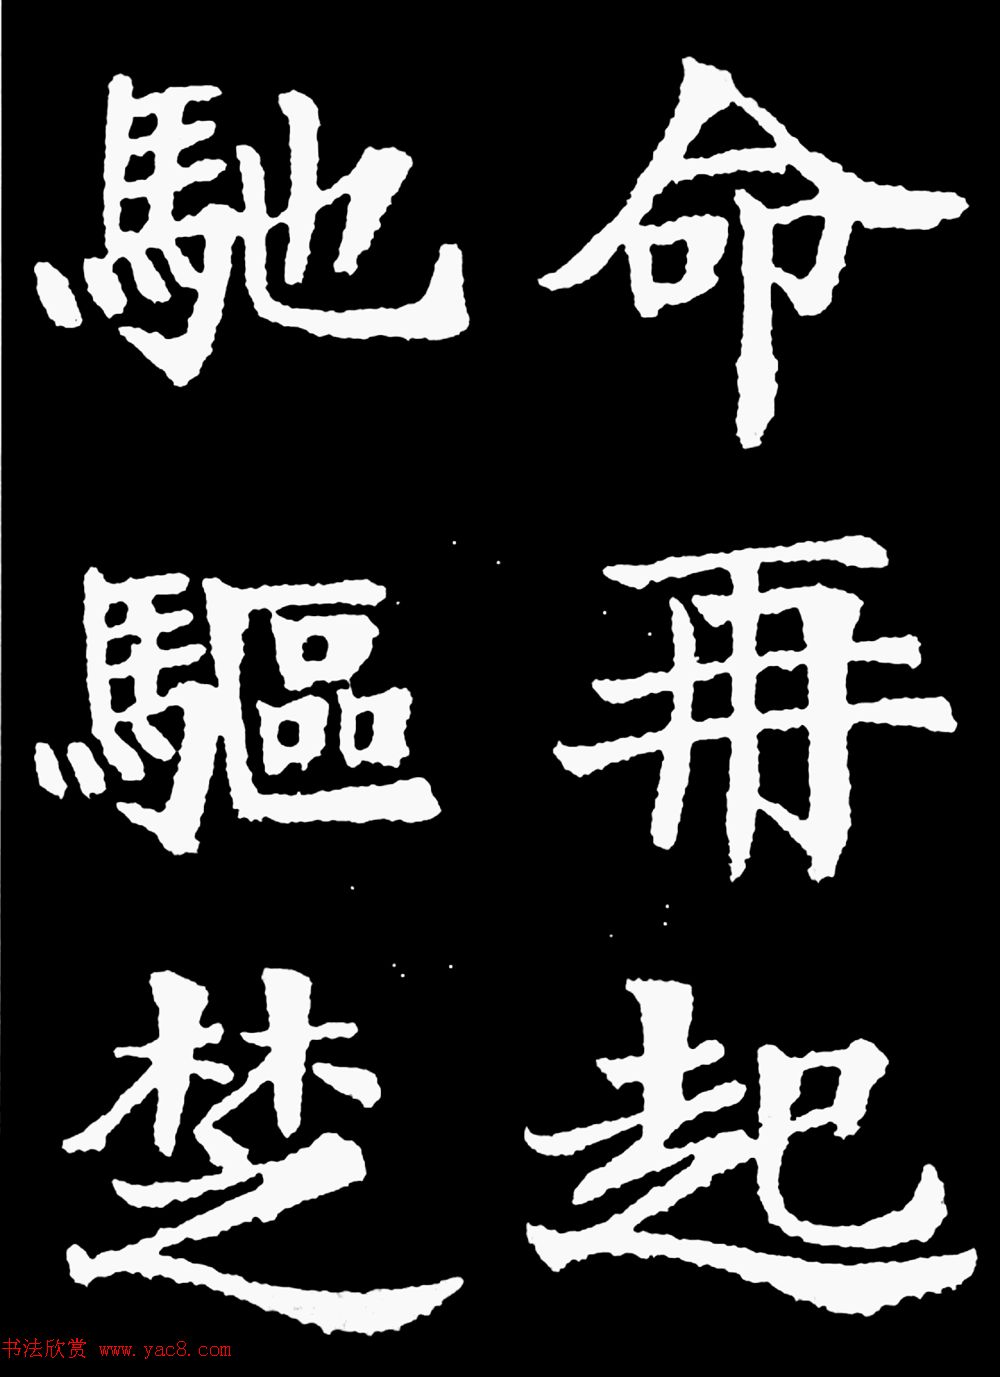 命再起
馳驅楚
书法欣赏 www.yac8.com